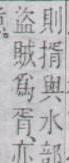 則揟與水部
盜賊爲胥亦